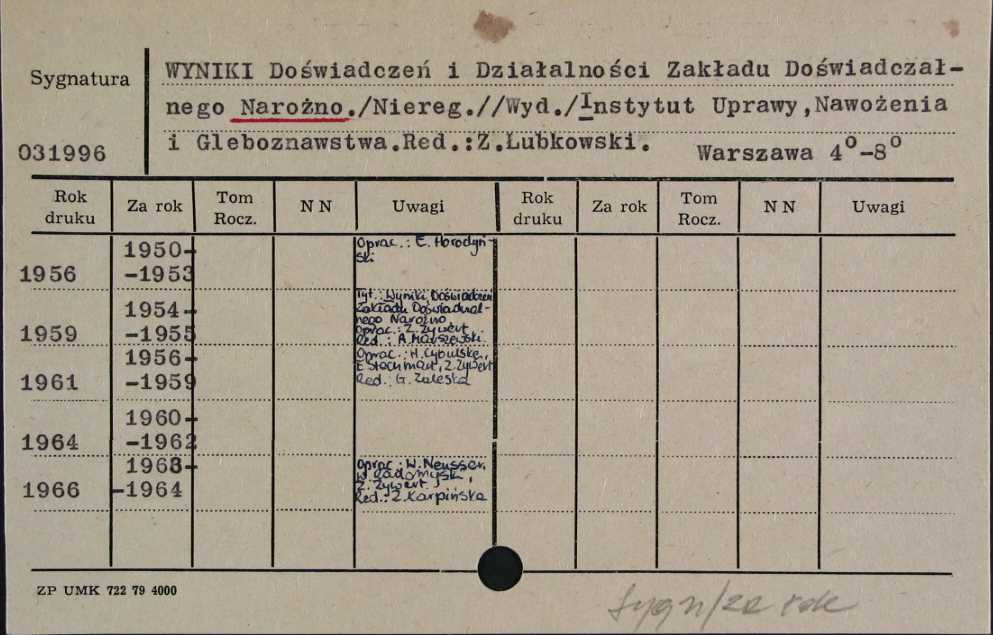 Sygnatura
WYNIKI Doświadczeń i Działalności Zakładu Doświadczal-
nego Narożno./Niereg.//Wyd./Instytut Uprawy,Nawożenia
i Gleboznawstwa.Red.:Z.Łubkowski. Warszawa 4°-8°
031996
Rok druku Za rok Tom Rocz. N N Uwagi Rok druku Za rok Tom Rocz. N N Uwagi
1956 1950-
-1953
Oprac.: E. Horodyń-
ski
1959 1954-
-1955
Tyt.: Wyniki Doświadczeń
Zakładu Doświadczal-
nego Narożno.
Oprac.: Z. Żywert.
Red.: A. Maszewski.
1961 1956-
-1959
Oprac.: H. Cybulska,
E. Stachman, Z. Żywert
Red.: G. Zaleska
1964 1960-
-1962
1966 1963-
-1964
Oprac.: W. Neusser,
Z. Żywert.
Red.: Z. Karpińska
ZP UMK 722 79 4000
Sygn/za rok